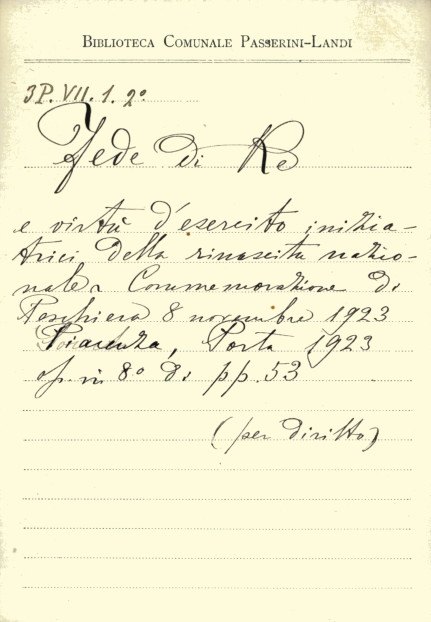 BIBLIOTECA COMUNALE PASSERINI-LANDI
3P.VII.1.2º
Fede di Re
e virtù d'esercito inizia-
trici della rinascita nazio-
nale. Commemorazione di
Peschiera 8 novembre 1923
Piacenza, Porta 1923
op. in 8º di pp. 53
(per diritto)